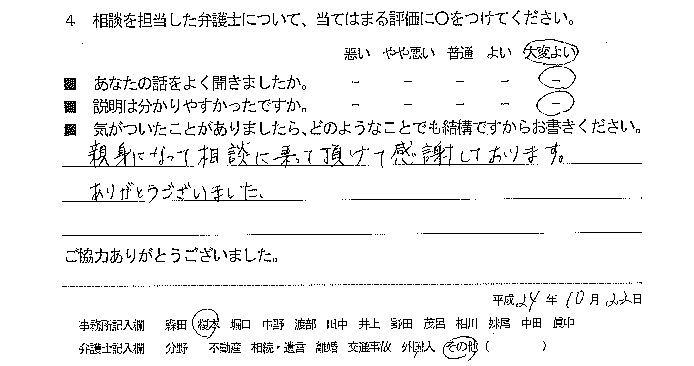 4 相談を担当した弁護士について、当てはまる評価に〇をつけてください。
悪い やや悪い 普通 よい 大変よい
あなたの話をよく聞きましたか。 － － － － －
説明は分かりやすかったですか。 － － － － －
気がついたことがありましたら、どのようなことでも結構ですからお書きください。
親身になって相談に乗って頂けて感謝しております。
ありがとうございました。
ご協力ありがとうございました。
平成24年10月22日
事務所記入欄 森田 榎本 堀口 中野 渡部 田中 井上 野田 茂呂 相川 妹尾 中田 眞中
弁護士記入欄 分野 不動産 相続・遺言 離婚 交通事故 外国人 その他( )